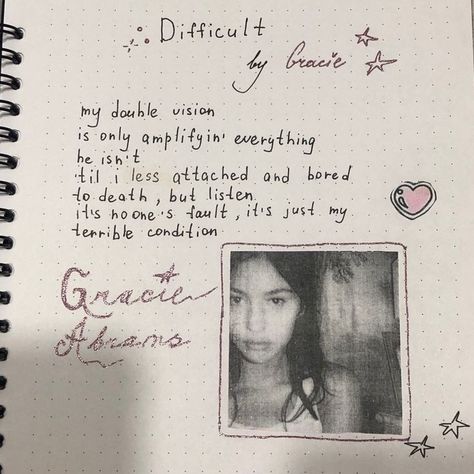 Difficult
by Gracie
my double vision
is only amplifyin' everything
he isn't
'til i less attached and bored
to death, but listen
it's no one's fault, it's just my
terrible condition
Gracie
Abrams